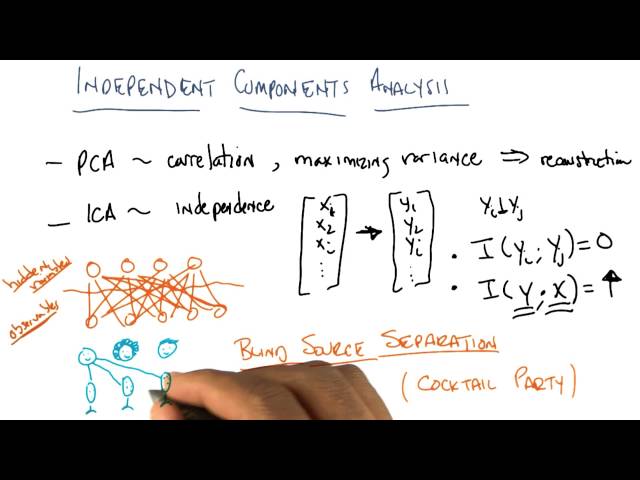 INDEPENDENT COMPONENTS ANALYSIS
- PCA ~ correlation, maximizing variance ⇒ reconstruction
- ICA ~ independence
x₁ → y₁
x₂ y₂
xᵢ yᵢ
⋮ ⋮
yᵢ ⊥ yⱼ
· I(yᵢ; yⱼ) = 0
· I(Y; X) = ↑
hidden variables
observables
BLIND SOURCE SEPARATION
(COCKTAIL PARTY)